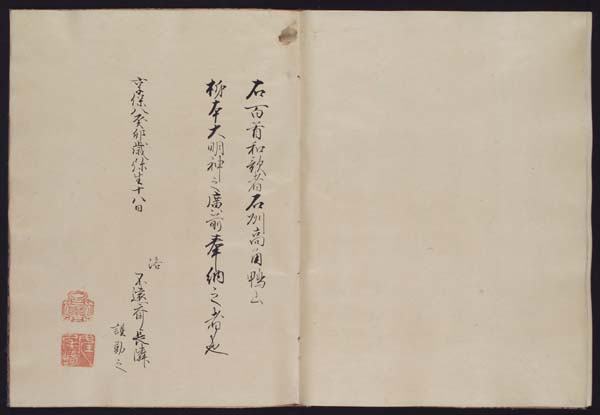 右百首和歌者石州高角鴨山
柿本大明神之廣前奉納之者也
享保八癸卯歳弥生十八日
洛
不遠斎長隣
謹勤之